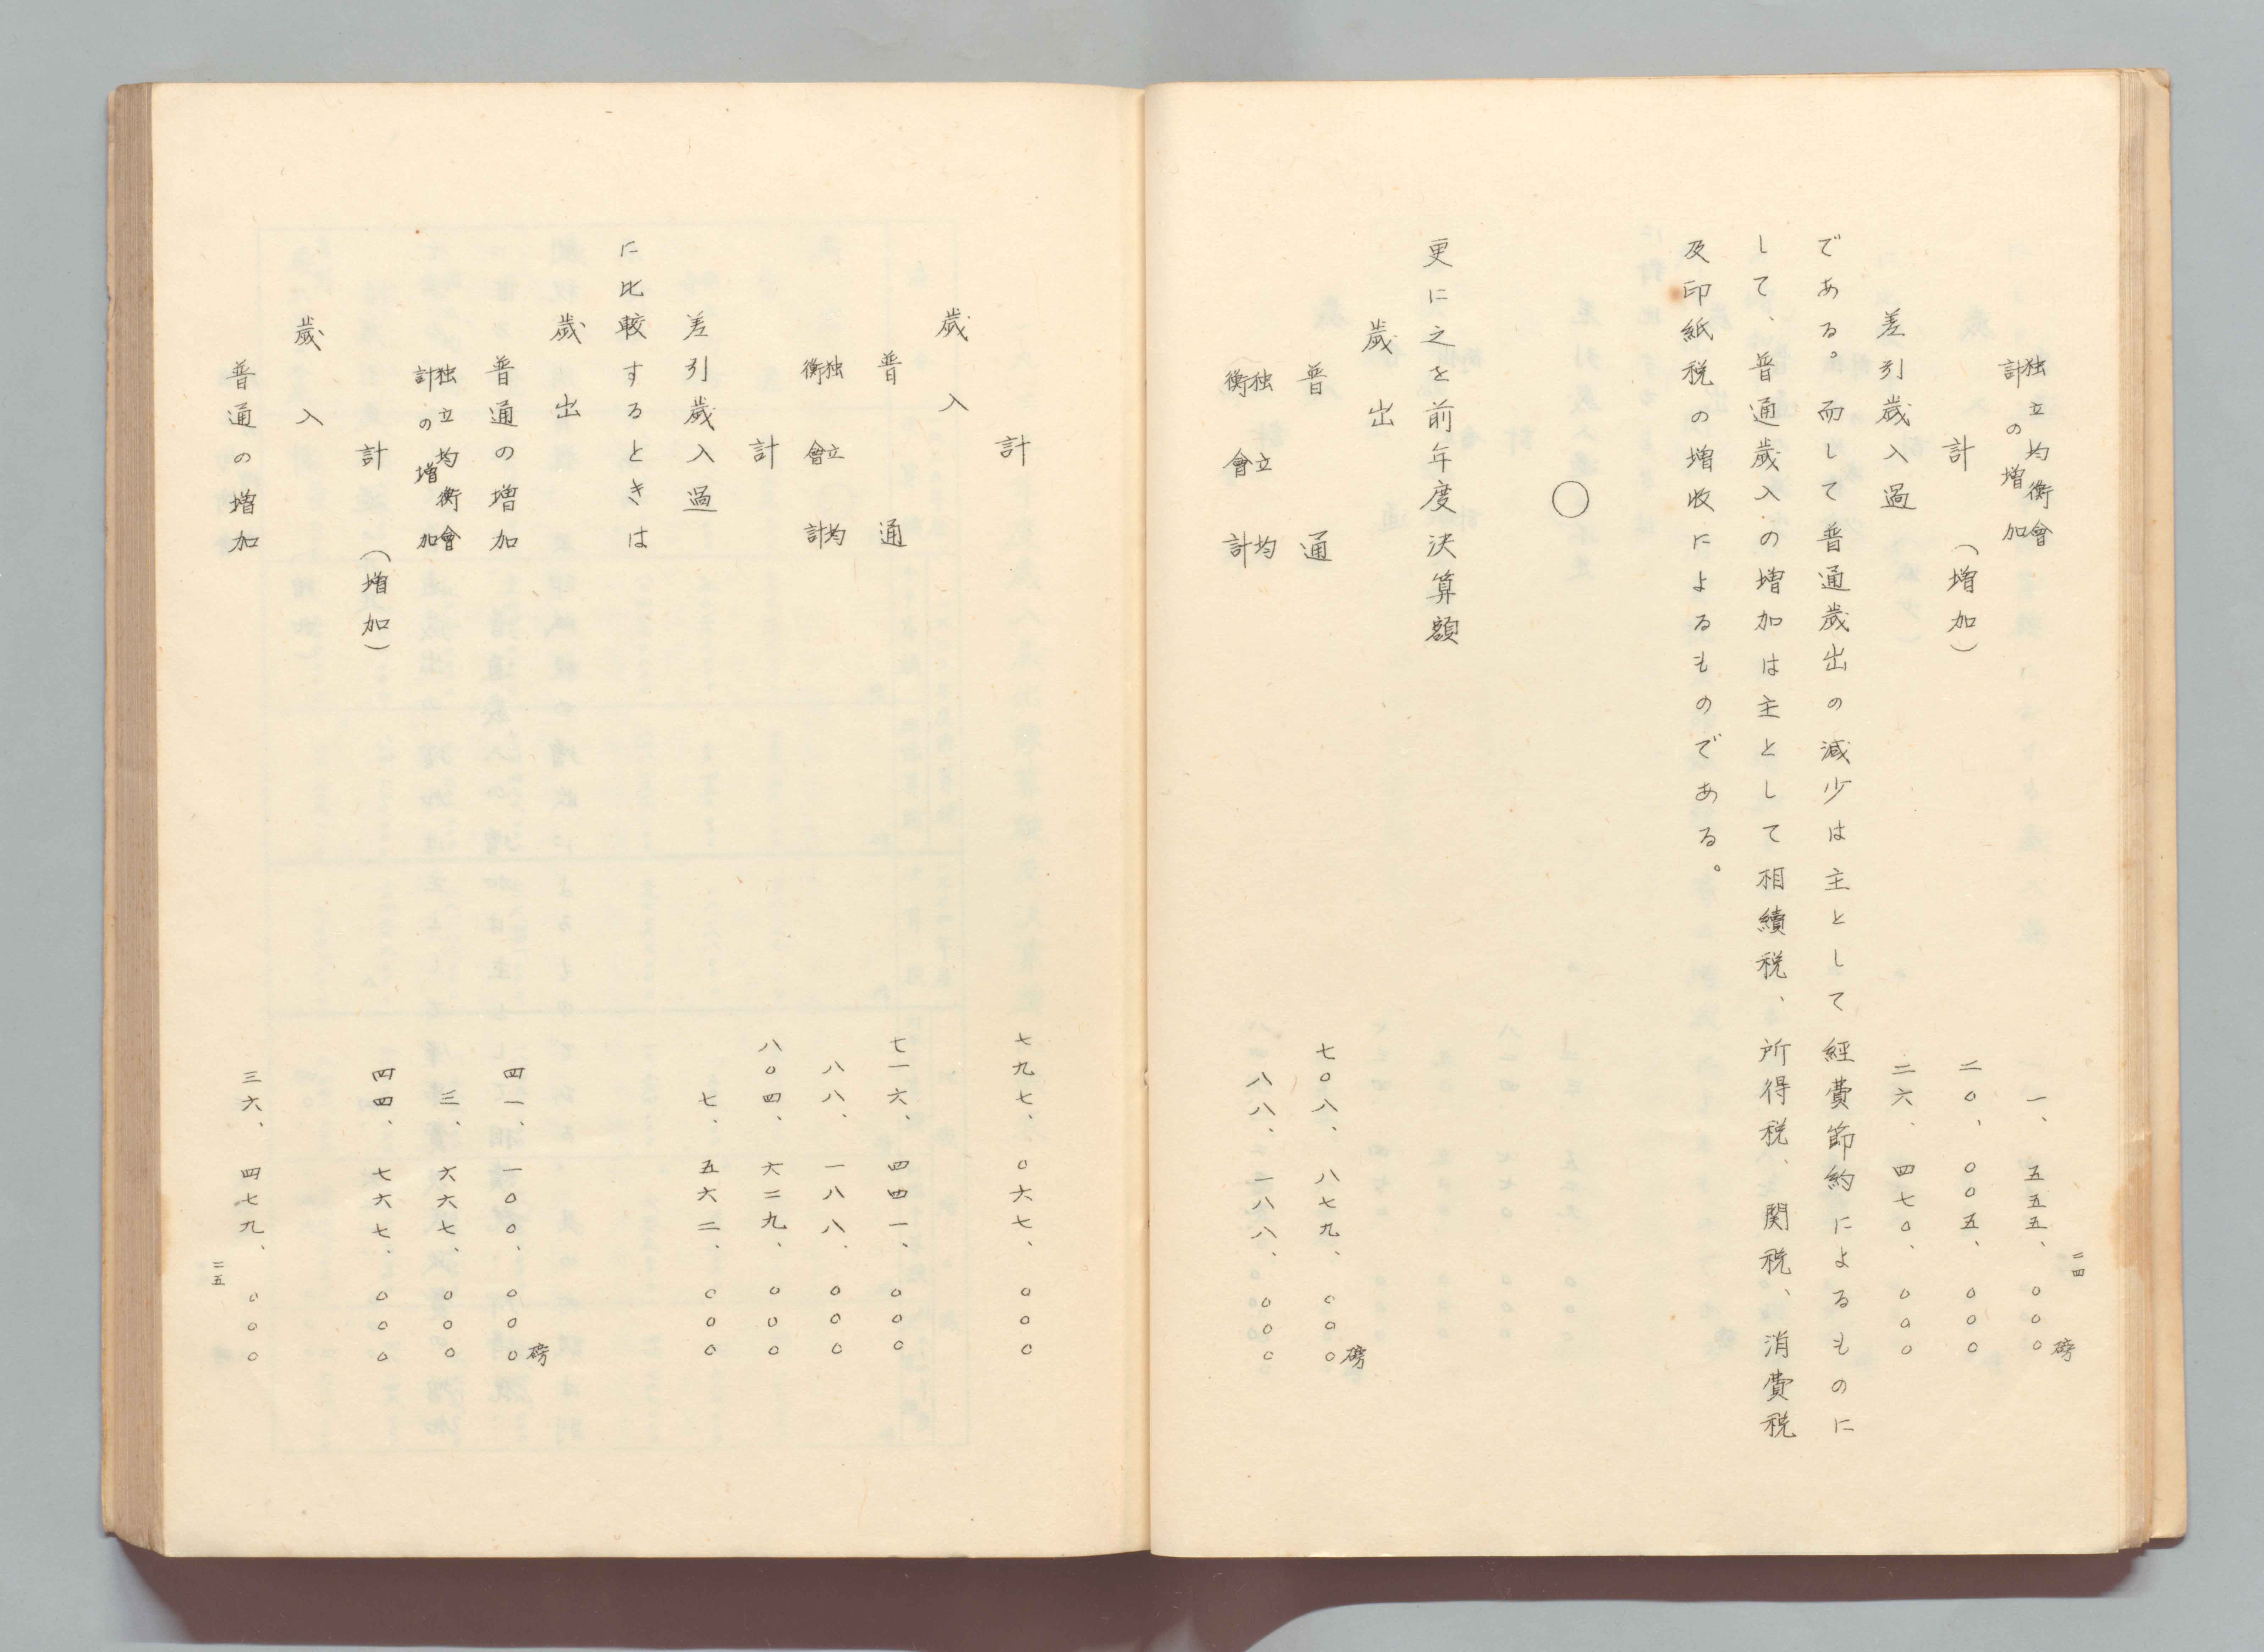 独立均衡會計の増加 一、五五五、〇〇〇磅
計 (増加) 二〇、〇〇五、〇〇〇
差引歳入過 二六、四七〇、〇〇〇
である。而して普通歳出の減少は主として經費節約によるものに
して、普通歳入の増加は主として相續税、所得税、関税、消費税
及印紙税の増收によるものである。
〇
更に之を前年度決算額
歳出
普通 七〇八、八七九、〇〇〇磅
独立均衡會計 八八、一八八、〇〇〇
二四
計 七九七、〇六七、〇〇〇
歳入
普通 七一六、四四一、〇〇〇
独立均衡會計 八八、一八八、〇〇〇
計 八〇四、六二九、〇〇〇
差引歳入過 七、五六二、〇〇〇
に比較するときは
歳出
普通の増加 四一、一〇〇、〇〇〇磅
独立均衡會計の増加 三、六六七、〇〇〇
計 (増加) 四四、七六七、〇〇〇
歳入
普通の増加 三六、四七九、〇〇〇
二五